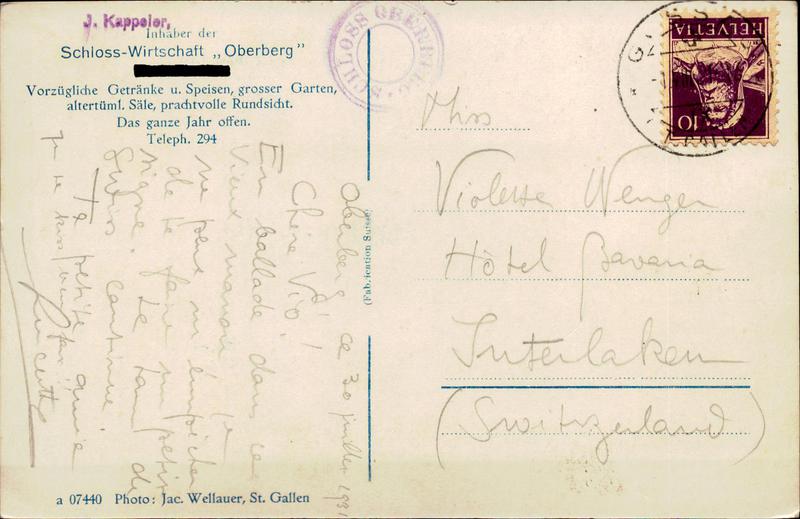 J. Kappeler,
Inhaber der
Schloss-Wirtschaft „Oberberg”
Vorzügliche Getränke u. Speisen, grosser Garten,
altertüml. Säle, prachtvolle Rundsicht.
Das ganze Jahr offen.
Teleph. 294
SCHLOSS OBERBERG
HELVETIA
10
Oberberg ce 30 juillet 1931
Chère Vio!
En ballade dans ce
vieux manoir je
ne peux m'empêcher
de te faire un petit
signe. Le tam de
Swiss continue
Ta petite amie
qui te
Miss
Violette Wenger
Hôtel Bavaria
Interlaken
(Switzerland)
(Fabrication Suisse)
a 07440 Photo: Jac. Wellauer, St. Gallen